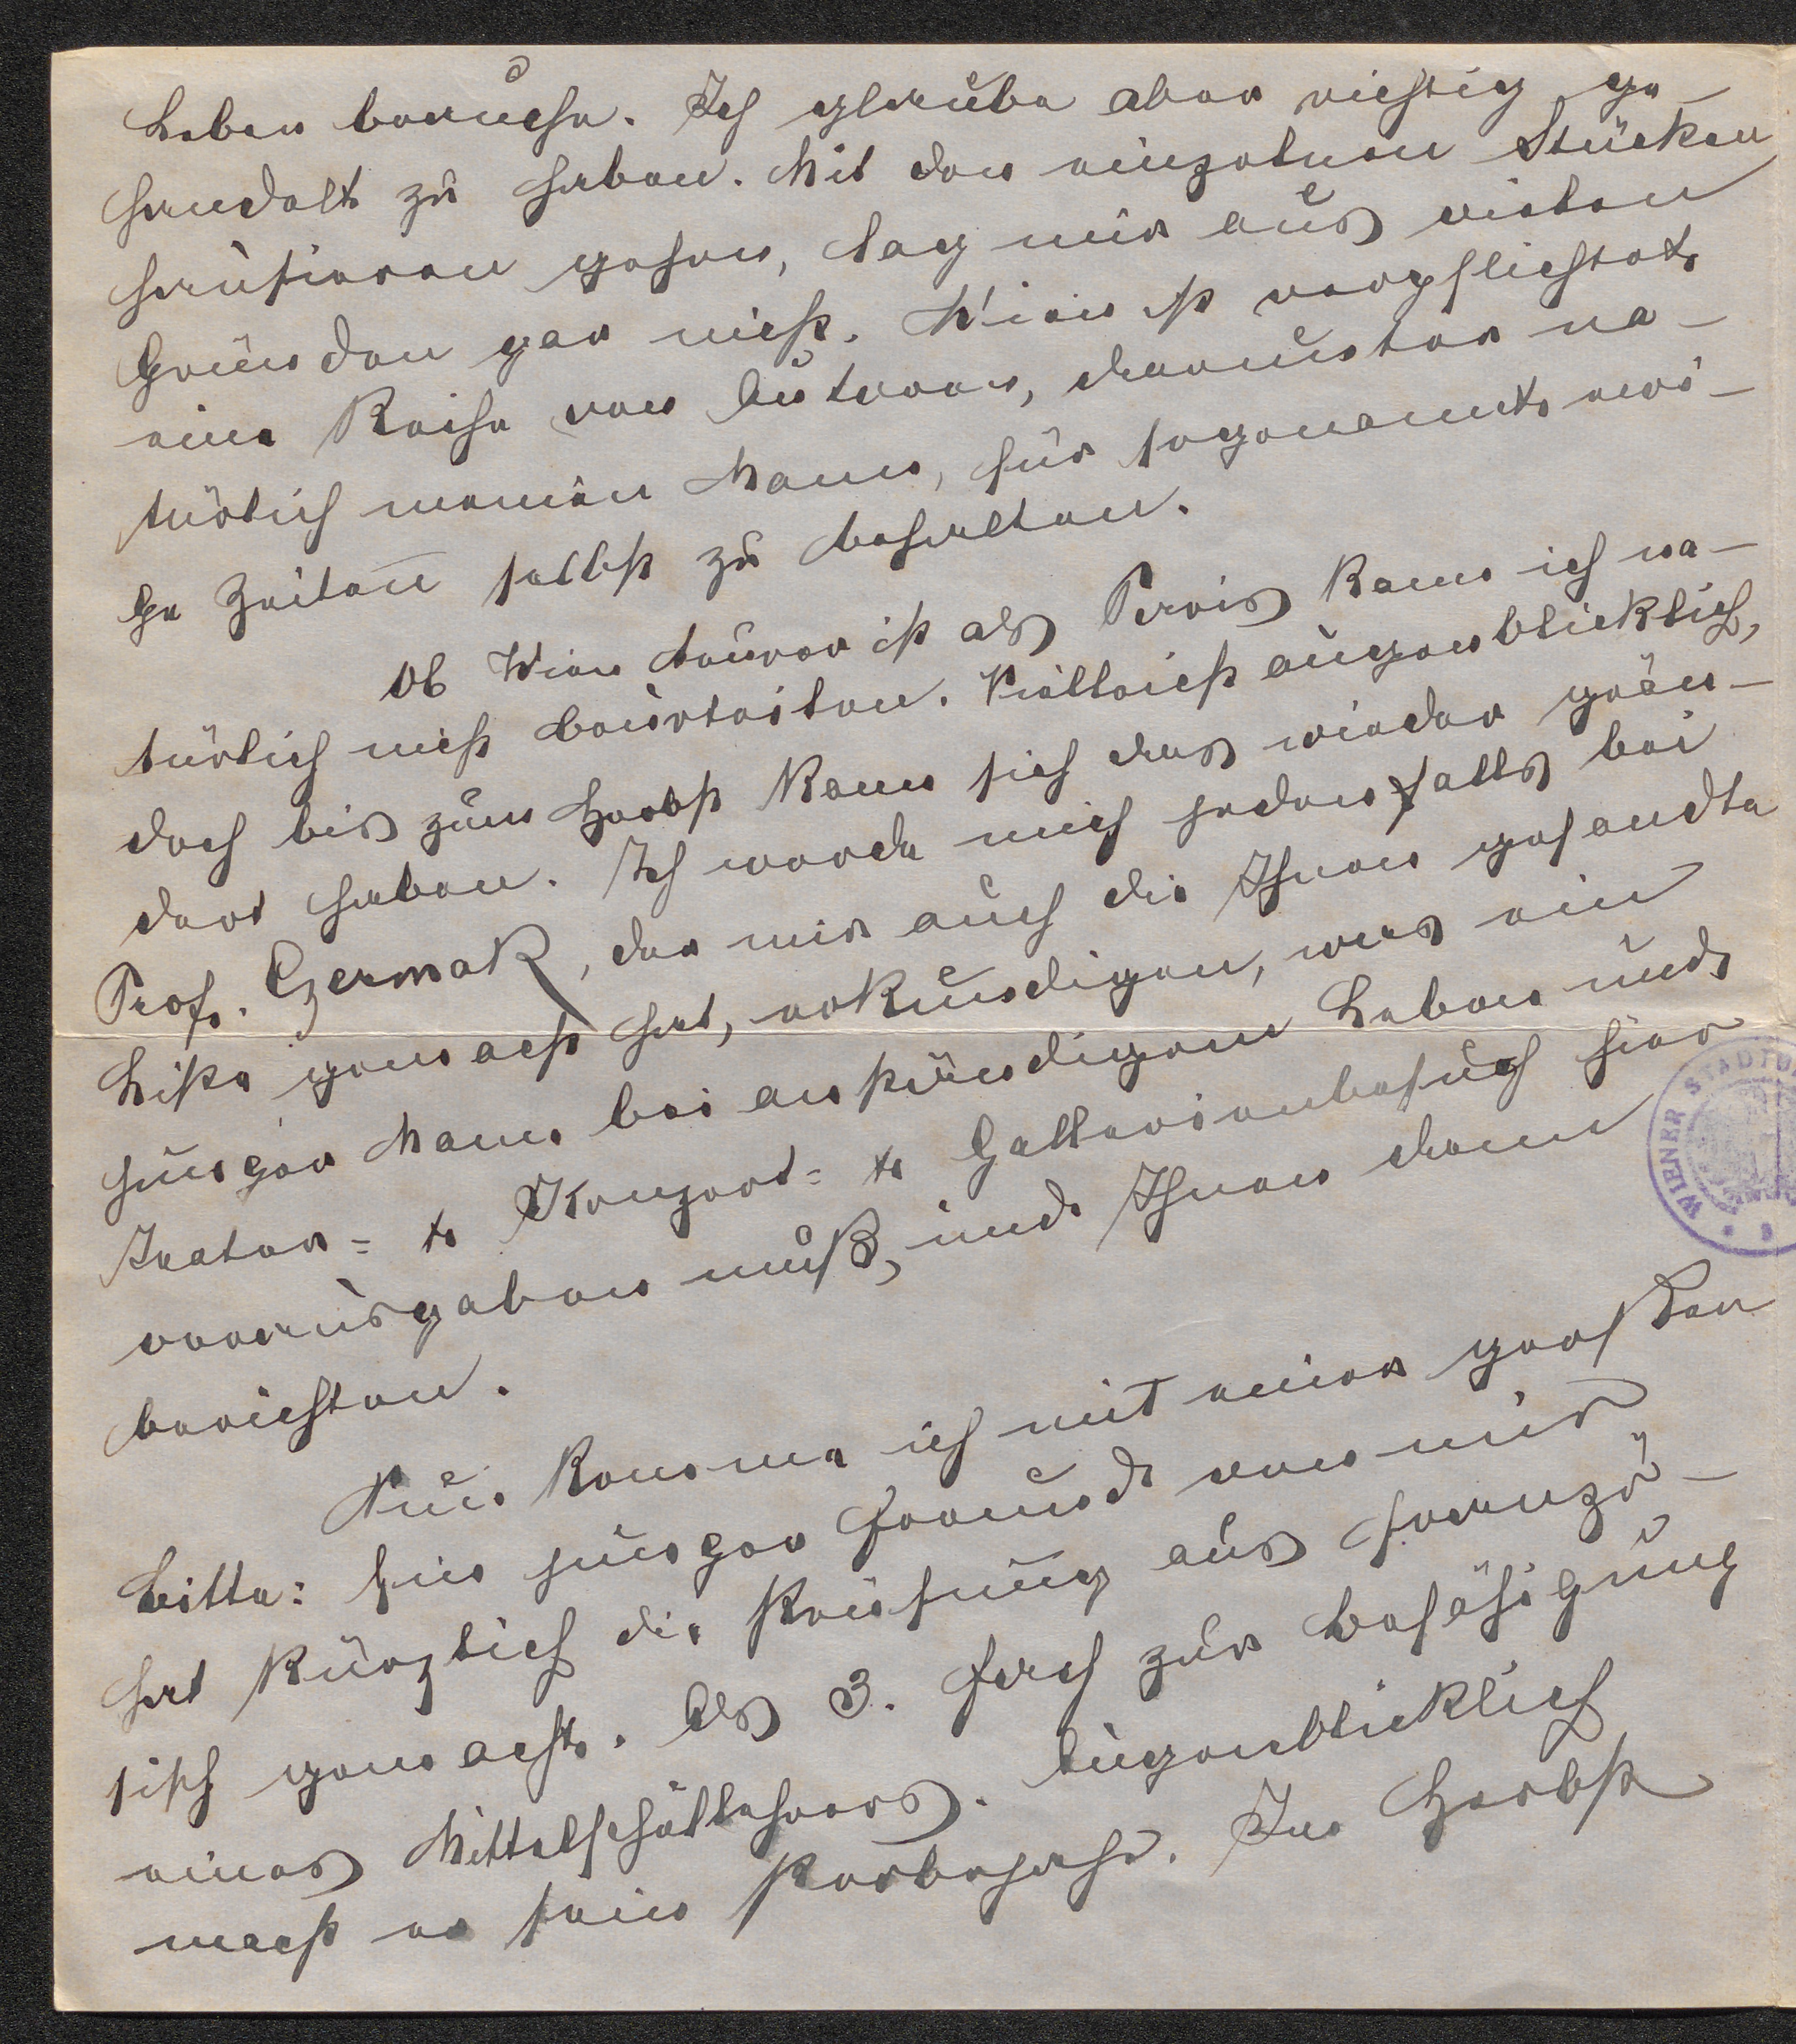 Leben brauche. Ich glaube aber richtig ge-
handelt zu haben. Mit den einzelnen Stücken
hausieren gehen, lag mir aus vielen
Gründen gar nicht. Wien ist verpflichtet,
eine Reihe von Autoren, darunter na-
türlich meinen Mann, für sogenannte ewi-
ge Zeiten selbst zu behalten.
Ob Wien teurer ist als Paris kann ich na-
türlich nicht beurteilen. Vielleicht augenblicklich,
doch bis zum Herbst kann sich das wieder geän-
dert haben. Ich werde mich jedenfalls bei
Prof. Czermak, der mir auch die Ihnen gesandte
Liste gemacht hat, erkundigen, was ein
junger Mann bei anständigem Leben und
Teater= & Konzert= & Galleriebesuch hier
verausgaben muß, und Ihnen dann
berichten.
Nun komme ich mit einer großen
Bitte: Ein junger Freund von mir
hat kürzlich die Prüfung aus Franzö-
sisch gemacht. Als 3. Fach zur Befähigung
eines Mittelschullehrers. Augenblicklich
macht er sein Probejahr. Im Herbst
WIENER STADT